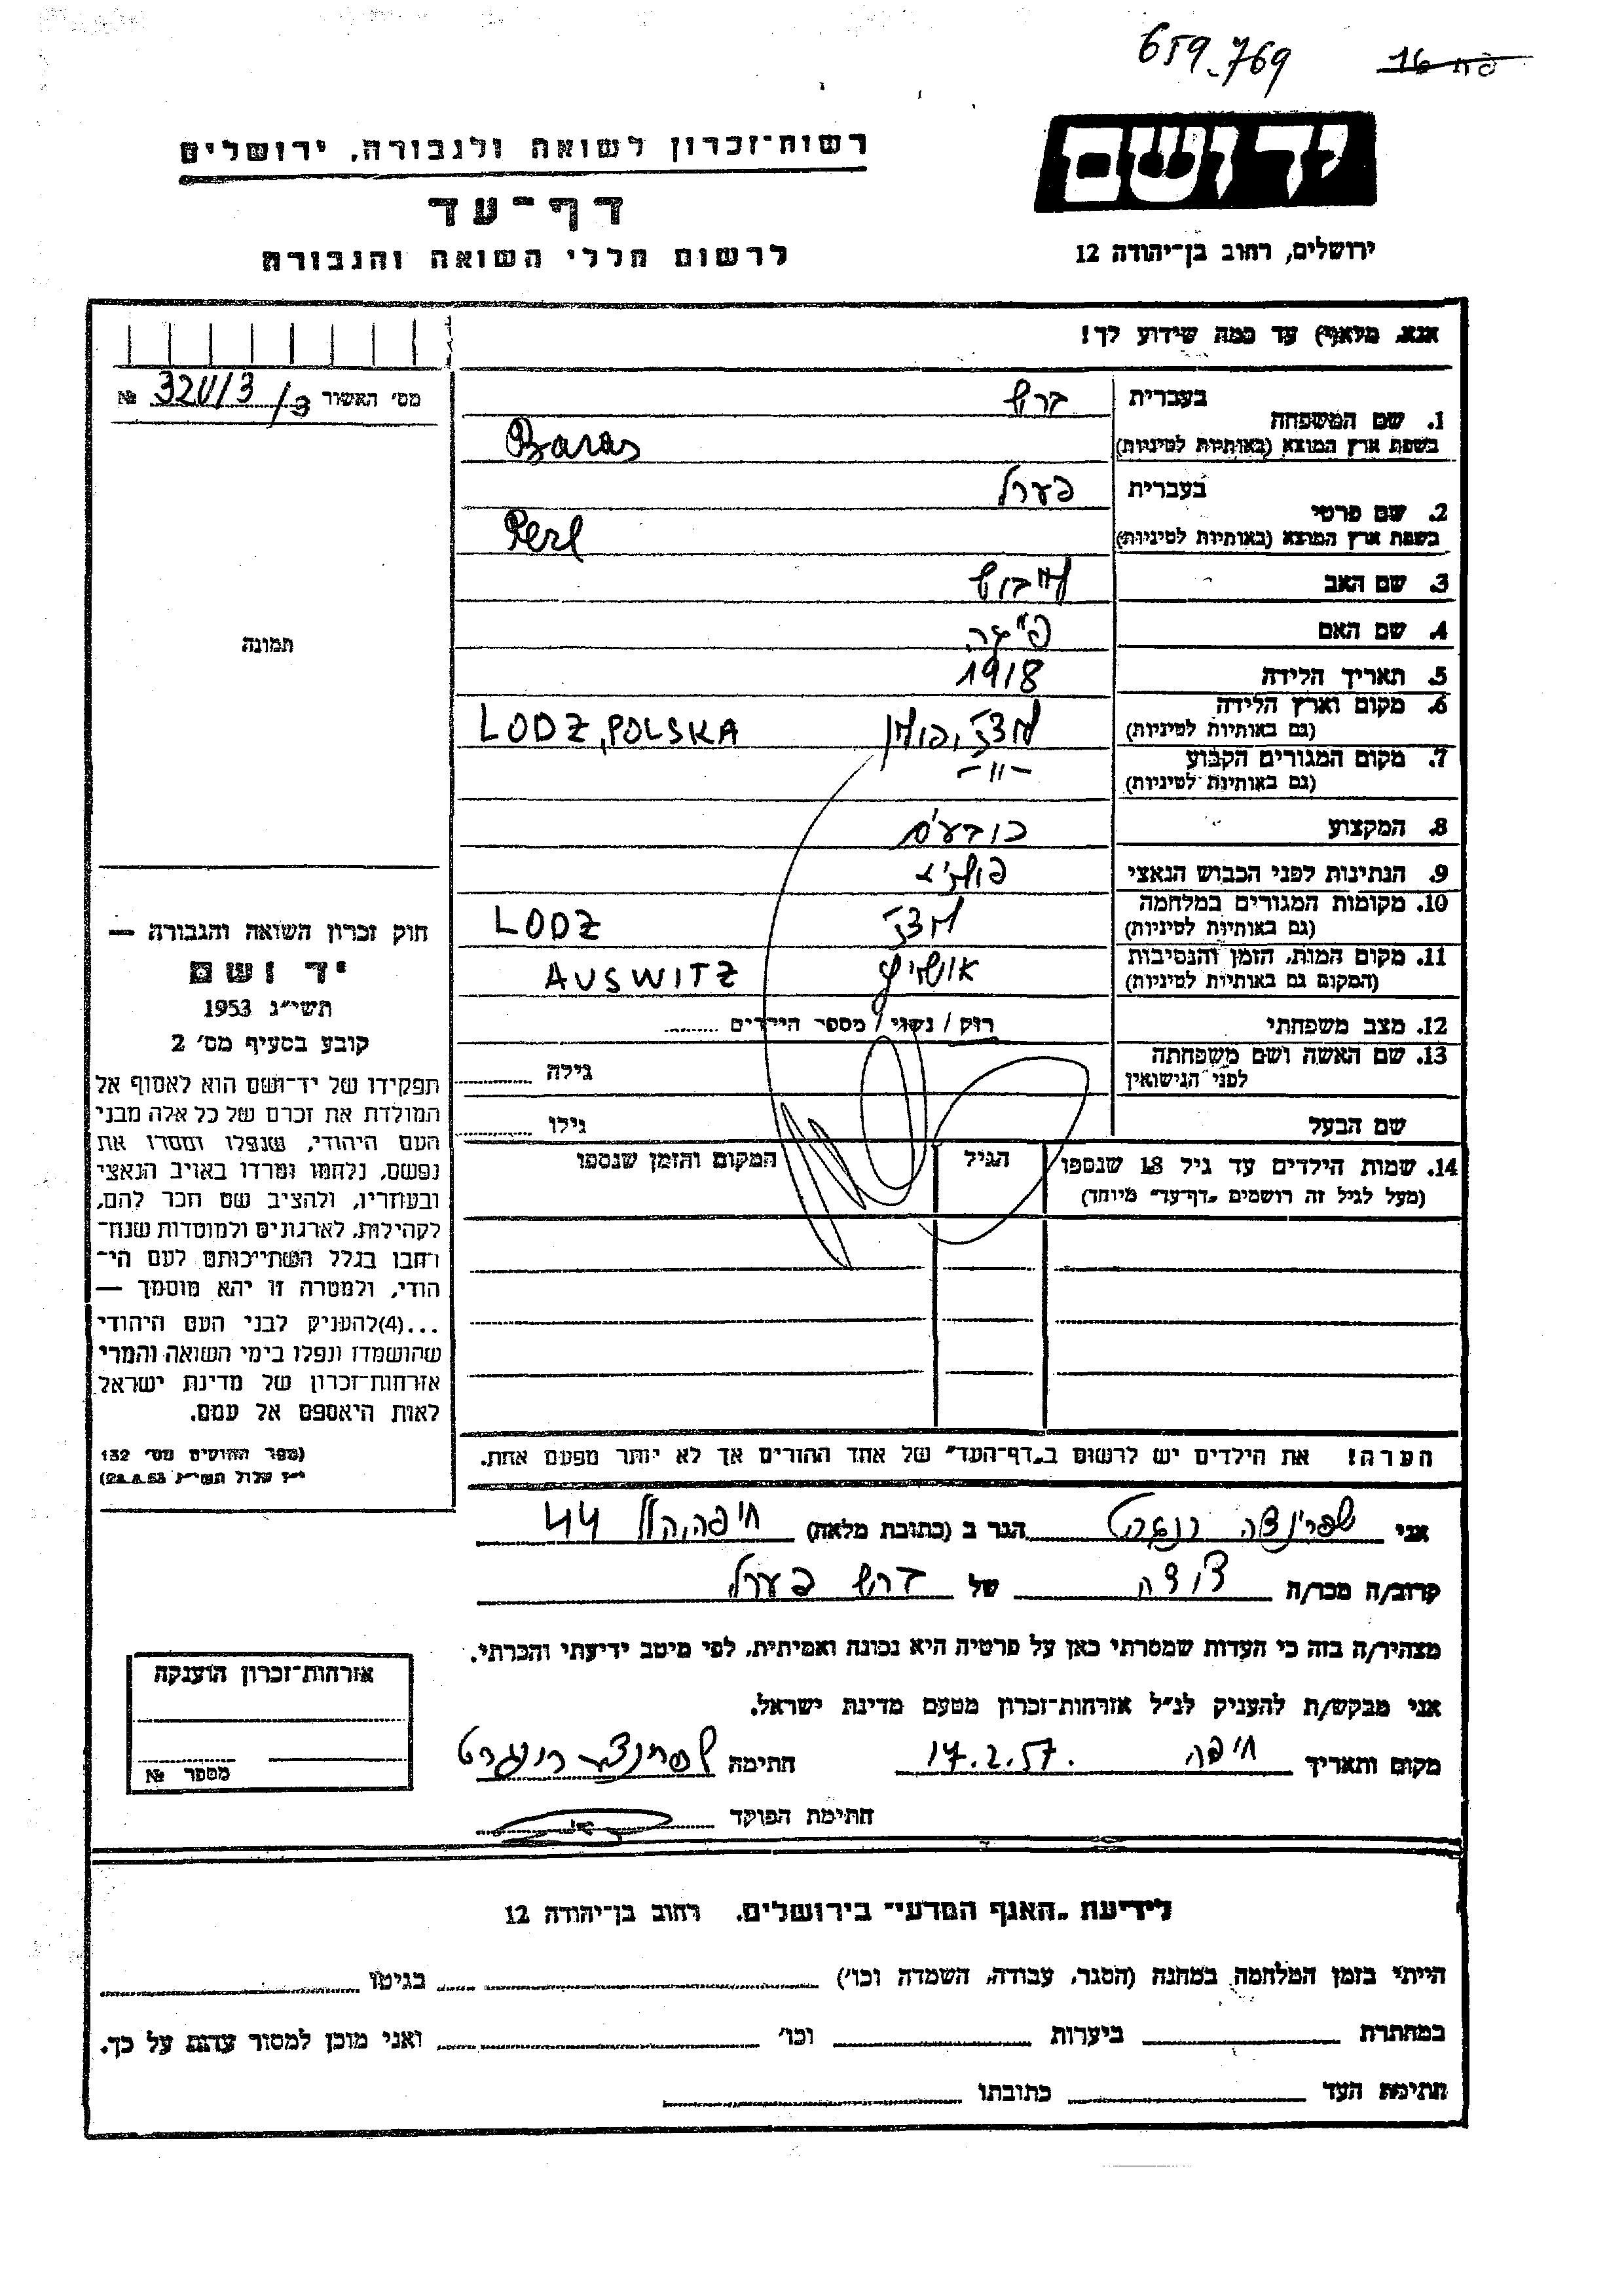 659.769
פח 16
יד ושם
ירושלים, רחוב בן־יהודה 12
רשות־זכרון לשואה ולגבורה. ירושלים
דף־עד
לרשום חללי השואה והגבורה
אנא, מלא(י) עד כמה שידוע לך!
מס׳ האשור 320/3/3 №
1. שם המשפחה
בעברית ברש
בשפת ארץ המוצא (באותיות לטיניות) Baras
2. שם פרטי
בעברית פערל
בשפת ארץ המוצא (באותיות לטיניות) Perl
3. שם האב לייבוש
4. שם האם פייגה
5. תאריך הלידה 1918
6. מקום וארץ הלידה לודז, פולין LODZ, POLSKA
(גם באותיות לטיניות)
7. מקום המגורים הקבוע -"-
(גם באותיות לטיניות)
8. המקצוע
9. הנתינות לפני הכבוש הנאצי פולנית
10. מקומות המגורים במלחמה לודז LODZ
(גם באותיות לטיניות)
11. מקום המות, הזמן והנסיבות אושויץ AUSWITZ
(המקום גם באותיות לטיניות)
12. מצב משפחתי רוק / נשוי / מספר הילדים
13. שם האשה ושם משפחתה
לפני הנישואין גילה
שם הבעל גילו
14. שמות הילדים עד גיל 18 שנספו הגיל המקום והזמן שנספו
(מעל לגיל זה רושמים "דף־עד" מיוחד)
תמונה
חוק זכרון השואה והגבורה —
יד ושם
תשי״ג 1953
קובע בסעיף מס׳ 2
תפקידו של יד־ושם הוא לאסוף אל
המולדת את זכרם של כל אלה מבני
העם היהודי, שנפלו ומסרו את
נפשם, נלחמו ומרדו באויב הנאצי
ובעוזריו, ולהציב שם וזכר להם,
לקהילות, לארגונים ולמוסדות שנח־
רבו בגלל השתייכותם לעם הי־
הודי, ולמטרה זו יהא מוסמך —
...(4) להעניק לבני העם היהודי
שהושמדו ונפלו בימי השואה והמרי
אזרחות־זכרון של מדינת ישראל
לאות היאספם אל עמם.
(ספר החוקים מס׳ 132
י״ז אלול תשי״ג 28.8.53)
הערה! את הילדים יש לרשום ב"דף־העד" של אחד ההורים אך לא יותר מפעם אחת.
אני שפרינצה הגר ב (כתובת מלאה) חיפה, הלל 44
קרוב/ה מכר/ה דודה של ברש פערל
מצהיר/ה בזה כי העדות שמסרתי כאן על פרטיה היא נכונה ואמיתית, לפי מיטב ידיעתי והכרתי.
אני מבקש/ת להעניק לנ״ל אזרחות־זכרון מטעם מדינת ישראל.
מקום ותאריך חיפה 17.2.57. חתימה
חתימת הפוקד
אזרחות־זכרון הוענקה
מספר №
לידיעת "האגף המדעי" בירושלים. רחוב בן־יהודה 12
הייתי בזמן המלחמה במחנה (הסגר, עבודה, השמדה וכו׳) בגיטו
במחתרת ביערות וכו׳ ואני מוכן למסור עדות על כך.
חתימת העד כתובתו